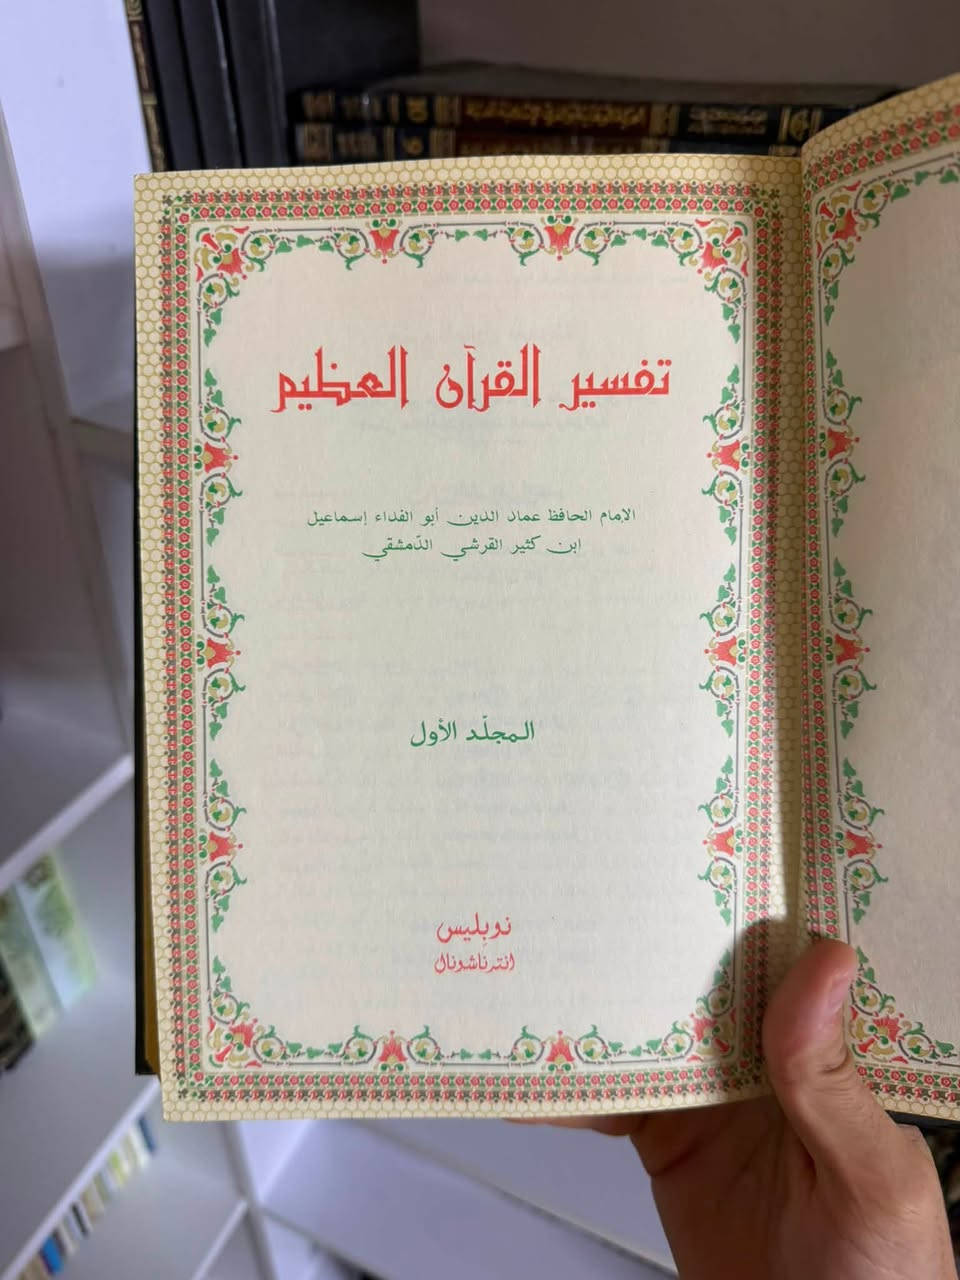 تفسير القرآن العظيم
الإمام الحافظ عماد الدين أبو الفداء إسماعيل
ابن كثير القرشي الدّمشقي
المجلّد الأول
نوبِليس
انترناشونال